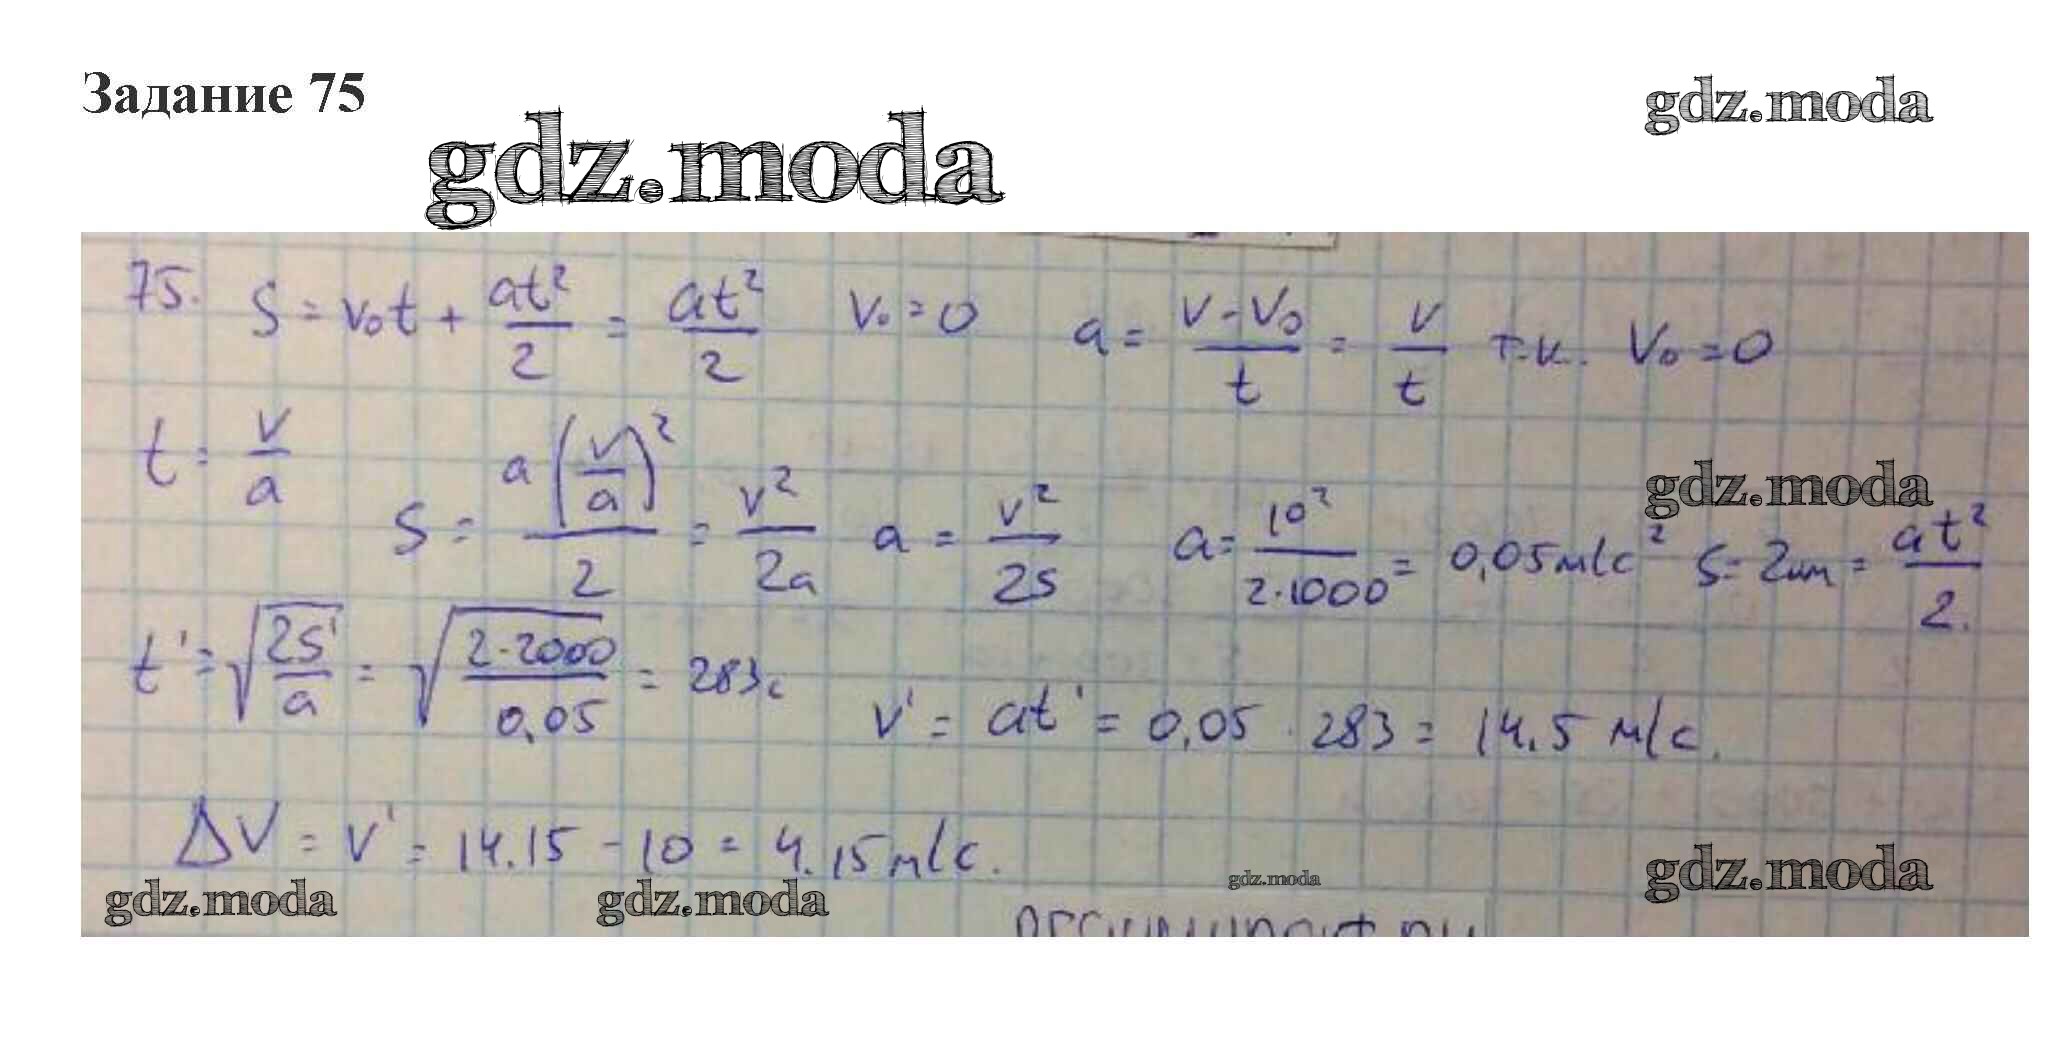 Задание 75
gdz.moda
gdz.moda
75. S = v₀t + at²/2 = at²/2 V₀ = 0 a = (v - v₀)/t = v/t т.к. V₀ = 0
t = v/a S = a(v/a)²/2 = v²/2a a = v²/2s a = 10²/2·1000 = 0,05 м/с² S = 2км = at²/2.
gdz.moda
t' = √(2s'/a) = √(2·2000/0,05) = 283с v' = at' = 0,05 · 283 = 14.5 м/с.
ΔV = v' = 14.15 - 10 = 4.15 м/с.
gdz.moda
gdz.moda
gdz.moda
gdz.moda